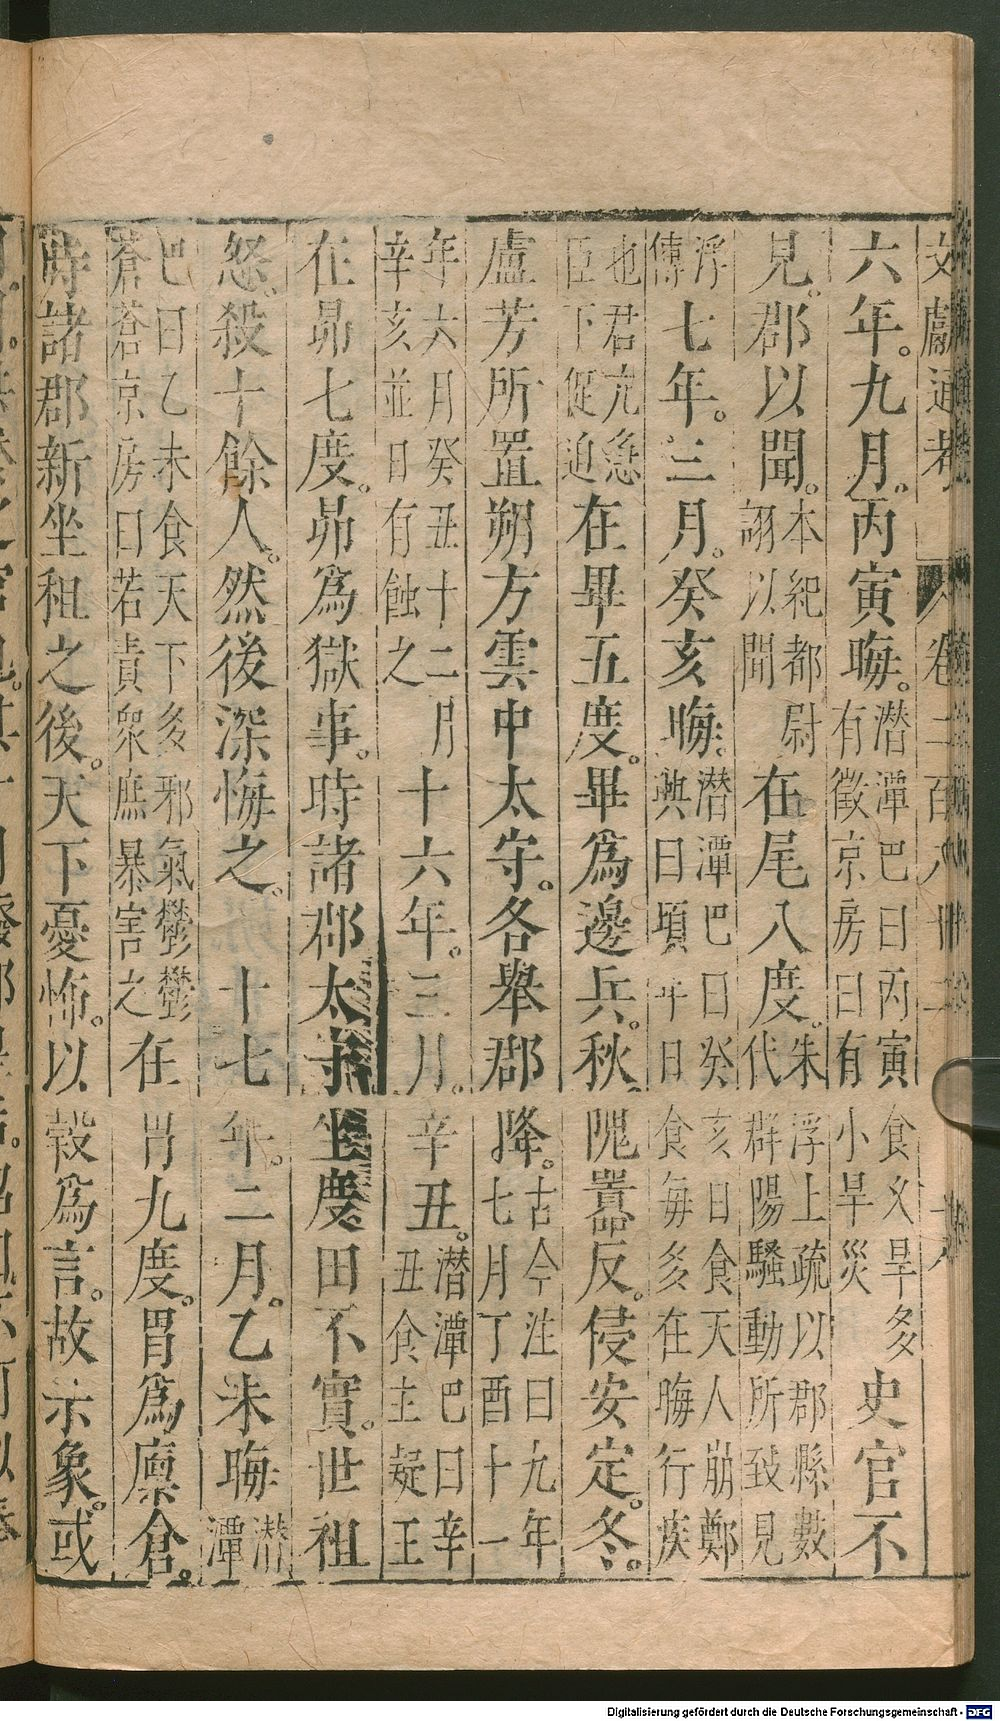 文獻通考 卷二百八十二
六年。九月。丙寅晦。潛潭巴曰丙寅食乆旱多有徵京房曰有小旱災史官不
見。郡以聞。本紀都尉詡以聞在尾八度。朱浮上疏以郡縣數代群陽騷動所致見
浮傳七年。三月。癸亥晦。潛潭巴曰癸亥日食天人崩鄭興曰頃年日食每多在晦行疾
也君亢急臣下促迫在畢五度。畢爲邊兵。秋。隗囂反。侵安定。冬。
盧芳所置朔方雲中太守。各舉郡降。古今注曰九年七月丁酉十一
年六月癸丑十二月辛亥並日有蝕之十六年。三月。辛丑。潛潭巴曰辛丑食主疑王
在昴七度。昴爲獄事。時諸郡太守坐度田不實。世祖
怒。殺十餘人。然後深悔之。十七年。二月。乙未晦潛潭
巴曰乙未食天下多邪氣鬱鬱蒼蒼京房曰若責衆庶暴害之在胃九度。胃爲廩倉。
時諸郡新坐租之後。天下憂怖。以穀爲言。故示象。或
Digitalisierung gefördert durch die Deutsche Forschungsgemeinschaft - DFG